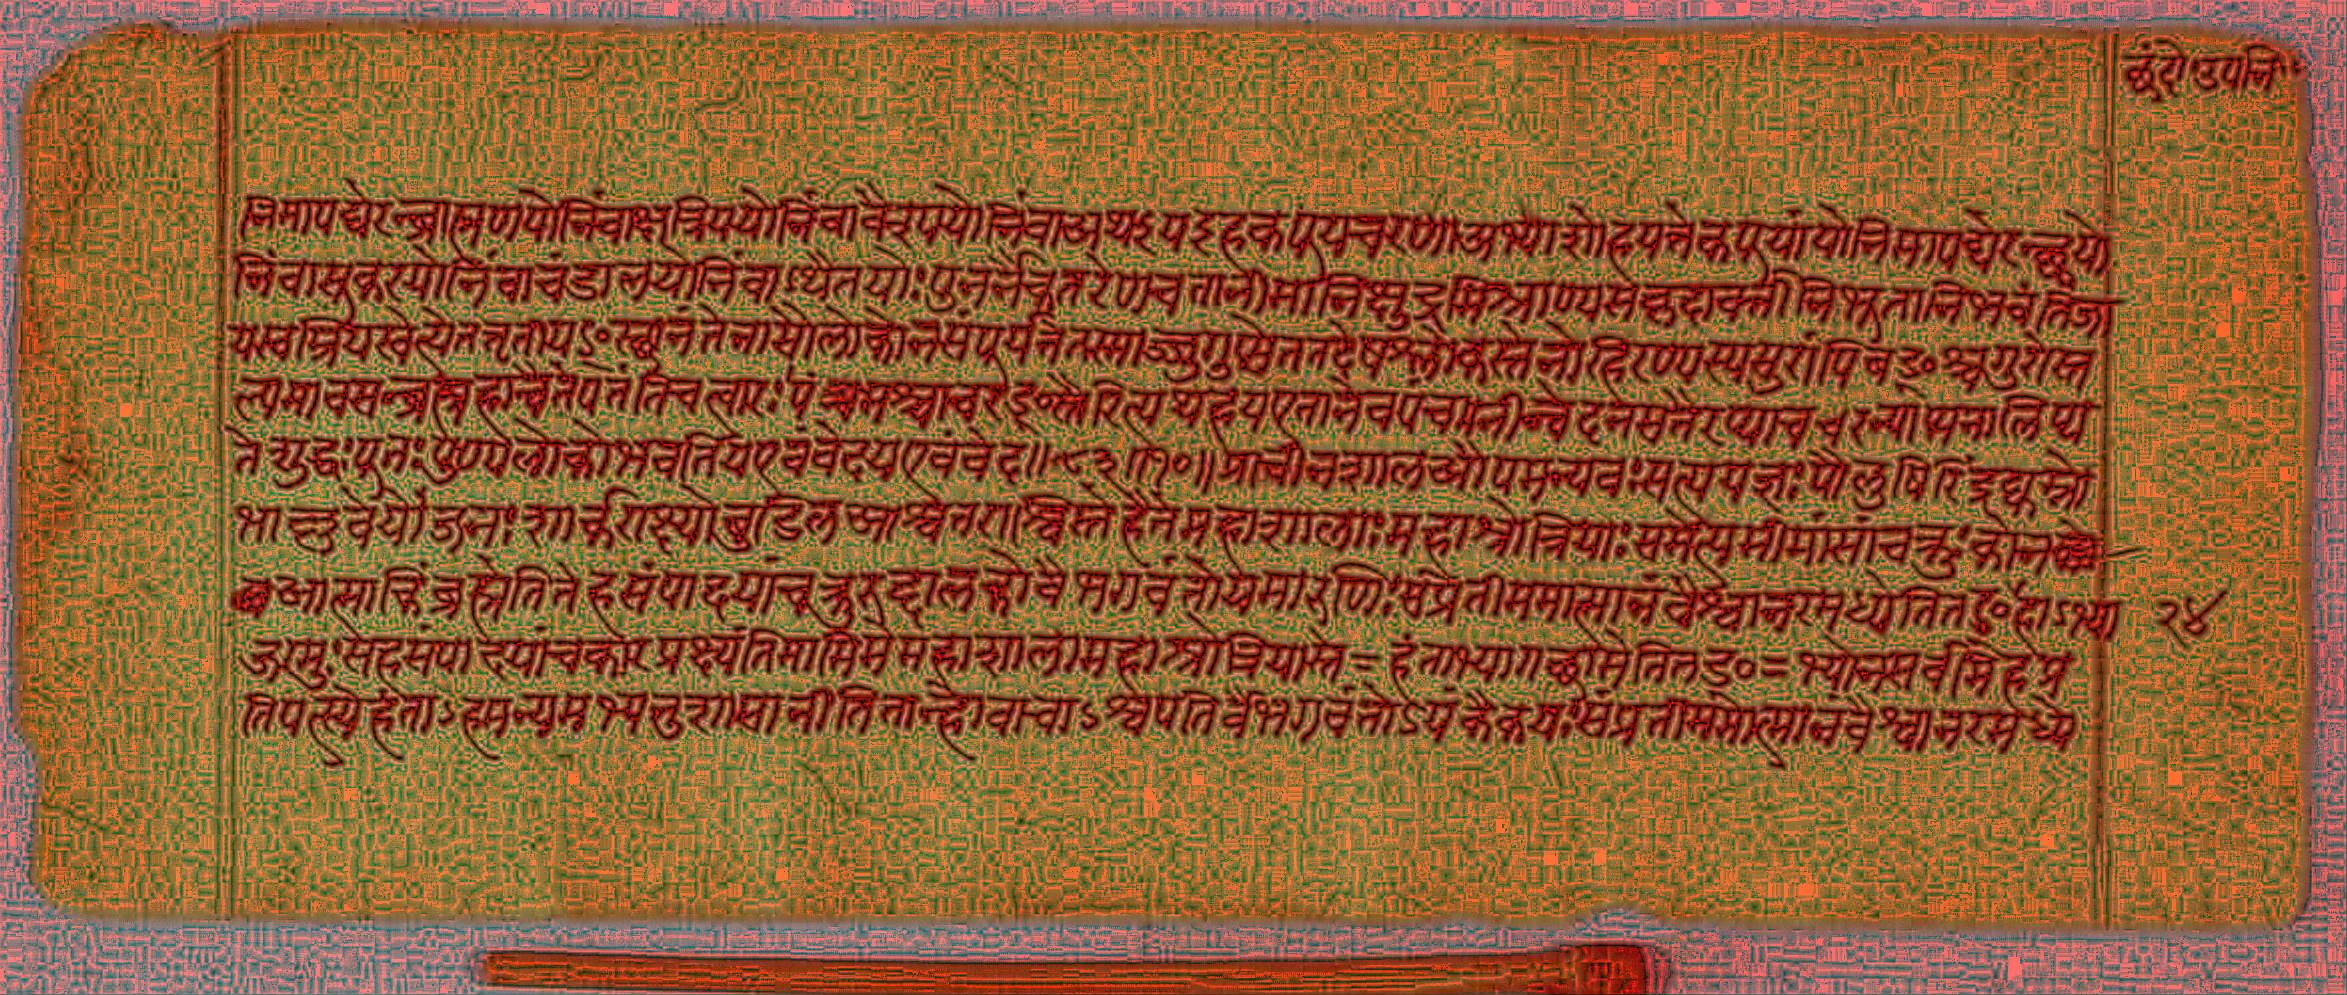 छंदो उपनि
निमापद्येरन्ब्राह्मणयोनिंवाक्षत्रिययोनिंवावैश्ययोनिंवाअथयइहकपूयचरणाअभ्याशोहयत्तेकपूयांयोनिमापद्येरन्छ्वयो
निंवासूकरयोनिंवाचंडालयोनिंवाऽथैतयोःपुनर्नैवतरेणचनतानीमानिक्षुद्रमिश्राण्यसकृदावर्त्तीनिभूतानिभवंतिजा
यस्वम्रियस्वेत्येतत्तृतीयꣳस्थानंतेनासौलोकोनसंपूर्यतेतस्माज्जुगुप्सेततदेषश्लोकस्तेनोहिरण्यस्यसुरांपिबꣳश्चगुरोस्त
ल्पमावसन्ब्रह्महाचैतेपतंतिचत्वारःपंचमश्चाचरꣳस्तैरित्यथहयएतानेवंपंचाग्नीन्वेदनसहतैरप्याचरन्पाप्मनालिप्य
तेशुद्धःपूतःपुण्यलोकोभवतियएवंवेदयएवंवेद॥१०॥प्राचीनशालऔपमन्यवःसत्ययज्ञःपौलुषिरिंद्रद्युम्नो
भाल्लवेयोजनःशार्कराक्ष्योबुडिलआश्वतराश्विस्तेहैतेमहाशालाःमहाश्रोत्रियाःसमेत्यमीमांसांचक्रुःकोन
आत्माकिंब्रह्मेतितेहसंपादयांचक्रुरुद्दालकोवैभगवंतोयमारुणिःसंप्रतीममात्मानंवैश्वानरमध्येतितꣳहाऽभ्या
जग्मुःसहसंपादयांचकारप्रक्ष्यंतिमामिमेमहाशालामहाश्रोत्रियास्ते=हंताभ्यागछामेतितꣳ=भ्योनसर्वमिहप्र
तिपत्स्येहंताऽहमन्यमभ्यनुशासानीतितान्होवाचाऽश्वपतिर्वैभगवंतोऽयंकैकेयःसंप्रतीममात्मानंवैश्वानरमध्ये
२४